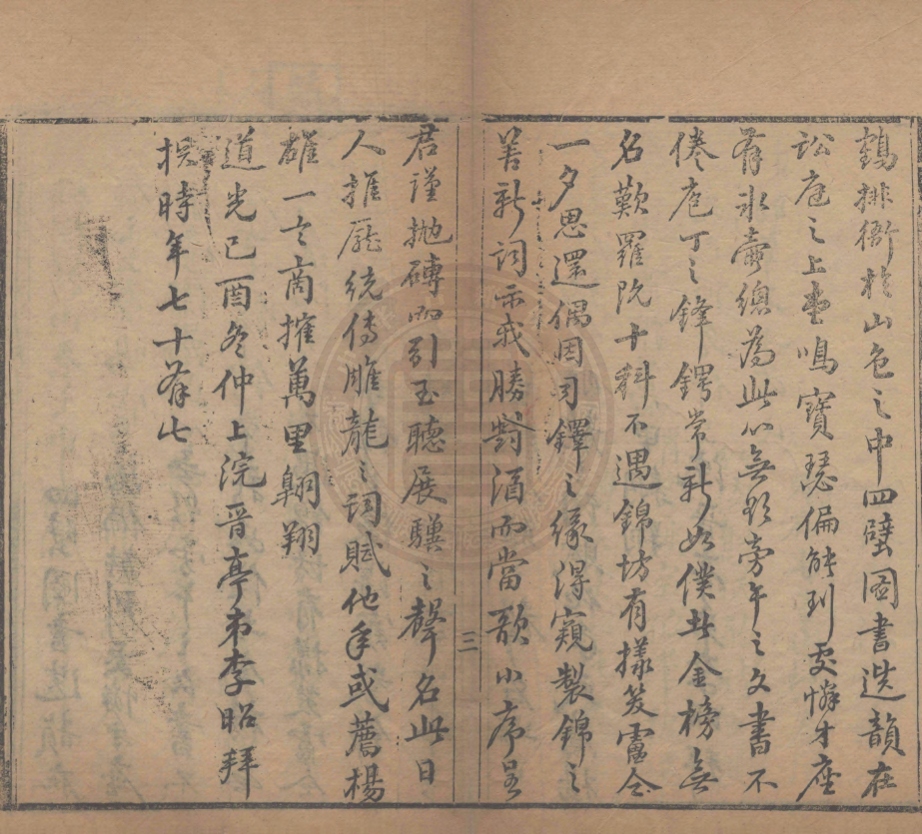 鶴排衙於山色之中四壁圖書選韻在
訟庭之上堂鳴寶瑟偏能到處憐才座
有冰壺總為此心無欲旁午之文書不
倦庖丁之鋒鍔常新如僕者金榜無
名歎羅隱十科不遇錦坊有樣笑雷仝
一夕思還偶因司鐸之緣得窺製錦之
善新詞示我勝對酒而當歌小序呈
三
君謹拋磚而引玉聽展驥之聲名此日
人推龐統傳雕龍之詞賦他年或薦楊
雄一言商搉萬里翱翔
道光己酉冬仲上浣晉亭弟李昭拜
撰時年七十有